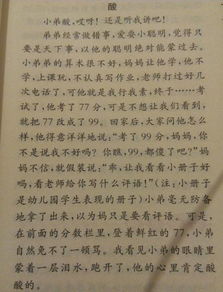 酸
小弟酸,哎呀!还是听我讲吧!
弟弟经常做错事,爱耍小聪明,觉得只
要是天下事,以他的聪明绝对能蒙过去。
小弟弟的算术很不好,妈妈让他学,他不
学,上课玩,不认真写作业,老师打过好几
次电话了,可他就是我行我素,终于……考
试了,他考了77分,可是不想让我们看到,
就把77改成了99。回家后,大家问他怎么
样,他得意洋洋地说:“考了99分,妈妈,你
不是说我不好吗?你瞧,99,都傻了吧?”妈
妈不信,就假装说:“幸,让我看看小册子好
吗,看老师给你写什么评语!”(注:小册子
是幼儿园学生表现的册子)小弟毫无防备
地拿了出来,以为妈只是要看评语。可是,
在前面的分数栏里,登着鲜红的77,小弟
自然免不了一顿骂。我看见小弟的眼睛里
蒙着一层泪水,跑开了,他的心里肯定酸
酸的。